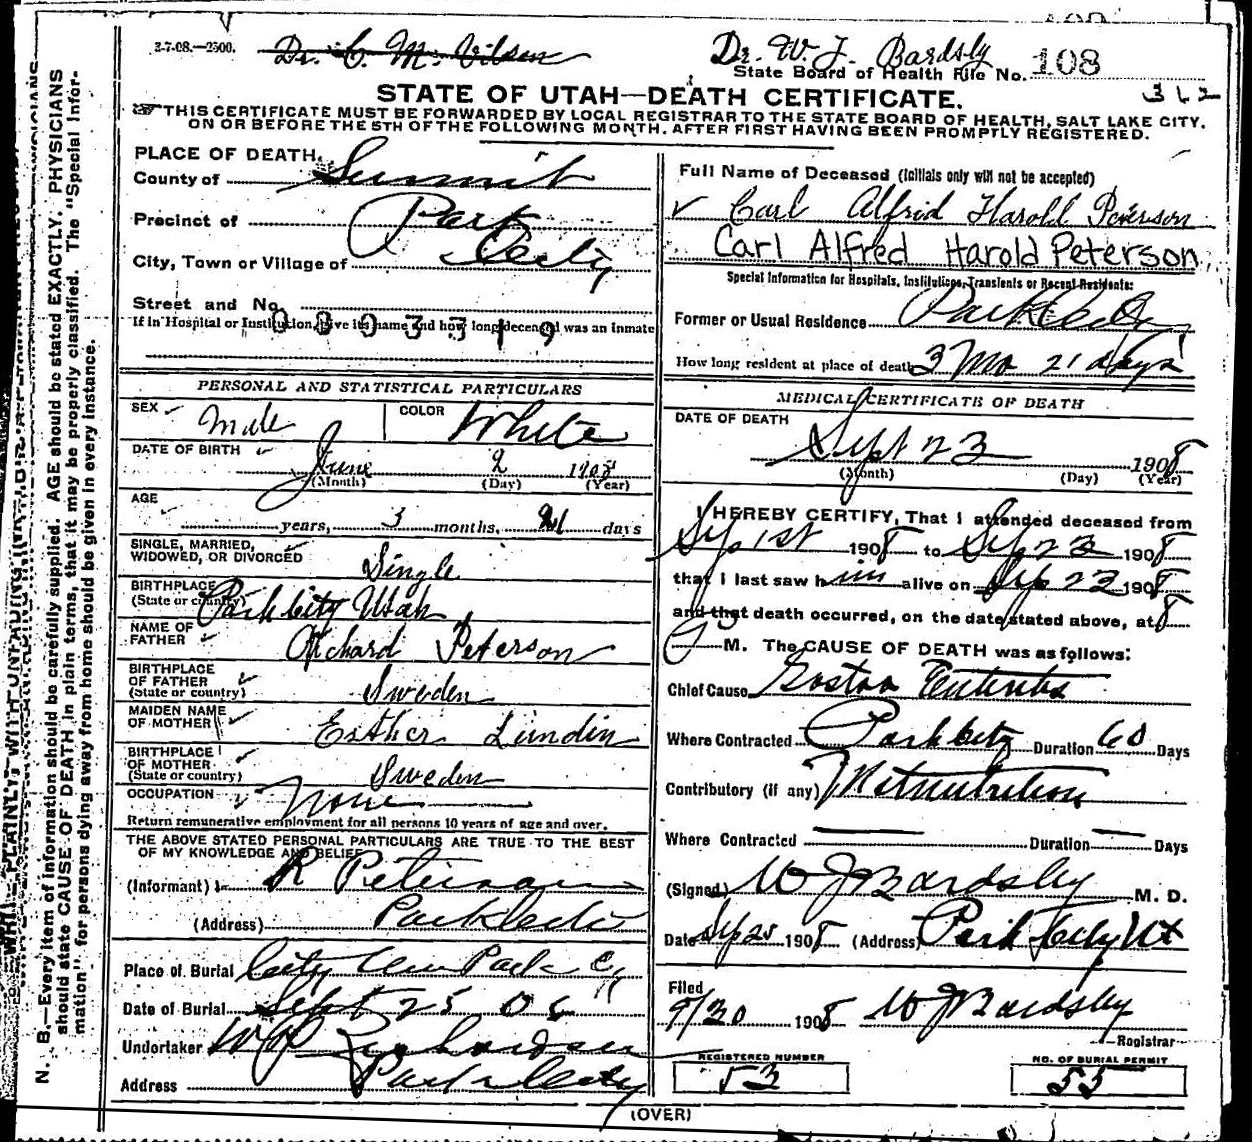 3-7-08.—2500.
Dr. C. M. Wilson
Dr. W. J. Bardsly
State Board of Health File No. 108
STATE OF UTAH—DEATH CERTIFICATE.
312
THIS CERTIFICATE MUST BE FORWARDED BY LOCAL REGISTRAR TO THE STATE BOARD OF HEALTH, SALT LAKE CITY.
ON OR BEFORE THE 5TH OF THE FOLLOWING MONTH. AFTER FIRST HAVING BEEN PROMPTLY REGISTERED.
N. B.—Every item of information should be carefully supplied. AGE should be stated EXACTLY. PHYSICIANS
should state CAUSE OF DEATH in plain terms, that it may be properly classified. The "Special Infor-
mation" for persons dying away from home should be given in every instance.
PLACE OF DEATH.
County of Summit
Precinct of Park
City, Town or Village of City
Street and No.
If in Hospital or Institution, give its name and how long deceased was an inmate
0803319
PERSONAL AND STATISTICAL PARTICULARS
SEX Male COLOR White
DATE OF BIRTH
June 2 1908
(Month) (Day) (Year)
AGE
years, 3 months, 21 days
SINGLE, MARRIED,
WIDOWED, OR DIVORCED Single
BIRTHPLACE
(State or country) Park City Utah
NAME OF
FATHER Richard Peterson
BIRTHPLACE
OF FATHER
(State or country) Sweden
MAIDEN NAME
OF MOTHER Esther Lundin
BIRTHPLACE
OF MOTHER
(State or country) Sweden
OCCUPATION None
Return remunerative employment for all persons 10 years of age and over.
THE ABOVE STATED PERSONAL PARTICULARS ARE TRUE TO THE BEST
OF MY KNOWLEDGE AND BELIEF
(Informant) R Peterson
(Address) Park City
Place of Burial City Cem Park Cy
Date of Burial Sept 25 08
Undertaker Richardson
Address Park City
Full Name of Deceased (Initials only will not be accepted)
Carl Alfrid Harold Peterson
Carl Alfred Harold Peterson
Special Information for Hospitals, Institutions, Transients or Recent Residents:
Former or Usual Residence Park City
How long resident at place of death 3 Mo 21 days
MEDICAL CERTIFICATE OF DEATH
DATE OF DEATH
Sept 23 1908
(Month) (Day) (Year)
I HEREBY CERTIFY, That I attended deceased from
Sep 1st 1908 to Sep 23 1908
that I last saw him alive on Sep 23 1908
and that death occurred, on the date stated above, at 8
P M. The CAUSE OF DEATH was as follows:
Chief Cause Gastro Enteritis
Where Contracted Park City Duration 60 Days
Contributory (if any) Malnutrition
Where Contracted Duration Days
(Signed) W J Bardsley M. D.
Date Sep 25 1908 (Address) Park City Ut
Filed
9/30 1908 W J Bardsley
Registrar
REGISTERED NUMBER
53
NO. OF BURIAL PERMIT
55
(OVER)